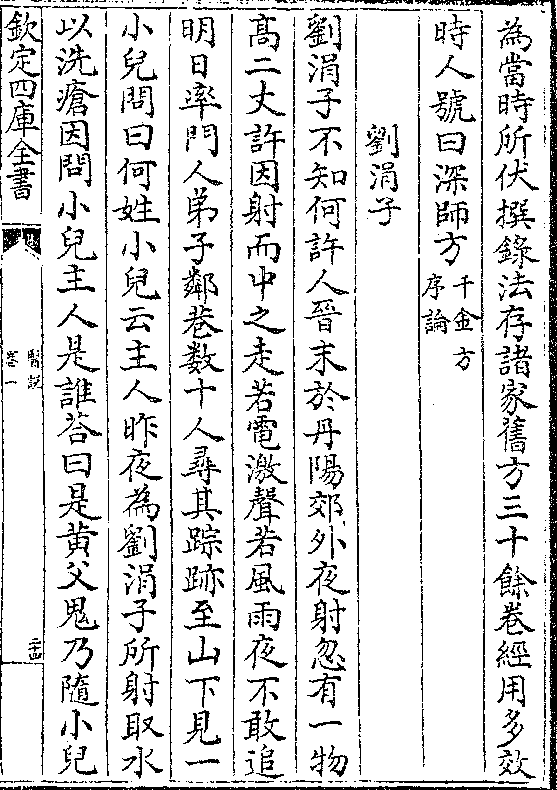 為當時所伏撰錄法存諸家舊方三十餘卷經用多效
時人號曰深師方千金方序論
劉涓子
劉涓子不知何許人晉末於丹陽郊外夜射忽有一物
髙二丈許因射而中之走若電激聲若風雨夜不敢追
明日率門人弟子鄰巷数十人尋其踪跡至山下見一
小兒問曰何姓小兒云主人昨夜為劉涓子所射取水
以洗瘡因問小兒主人是誰荅曰是黄父鬼乃隨小兒
欽定四庫全書
醫説
卷一
二十四